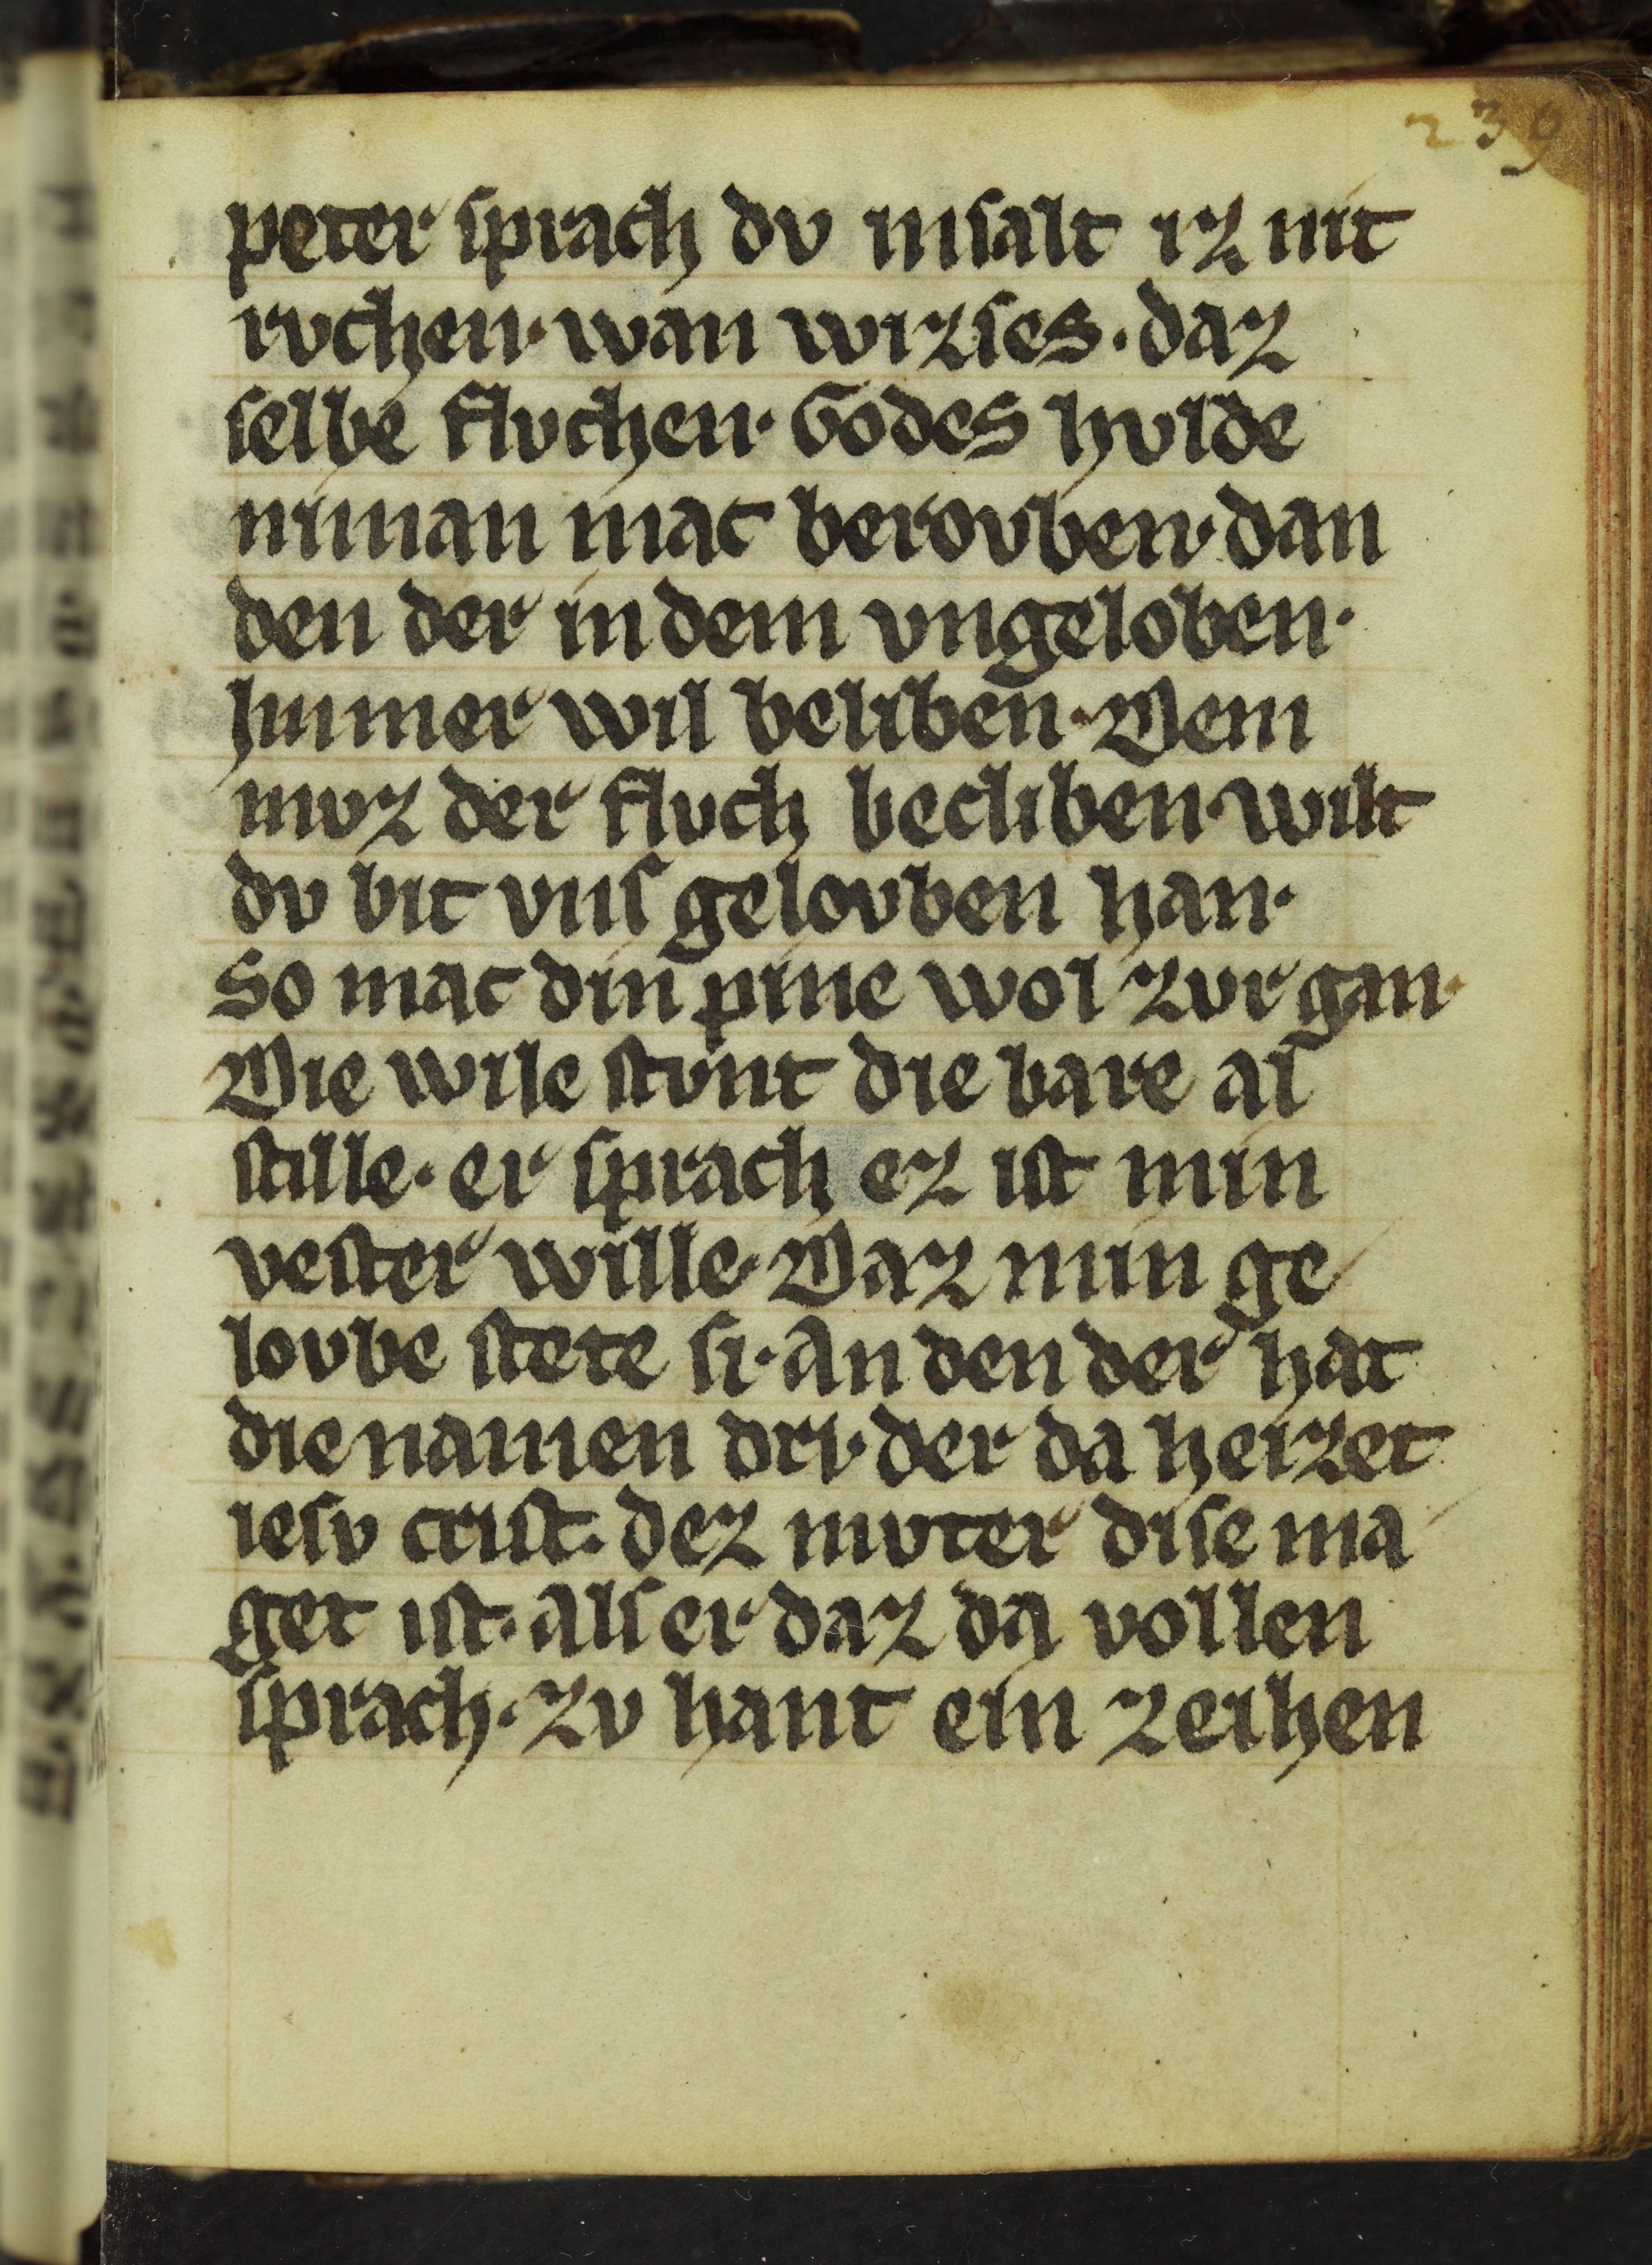 239
peter sprach dv insalt iz nit
rvchen· wan wizses· daz
selbe flvchen· Godes hvlde
niman mac berovben· dan
den der in dem vngeloben·
himmer wil beliben· Dem
mvz der flvch becliben· wilt
dv bit vns gelovben han·
So mac din pine wol zvr gan·
Die wile stvnt die bare al
stille· er sprach ez ist min
vester wille· Daz min ge
lovbe stete si· An den der hat
die namen dri· der da heizet
iesv crist· dez mvter dise ma
get ist· Als er daz da vollen
sprach· Zv hant ein zeihen